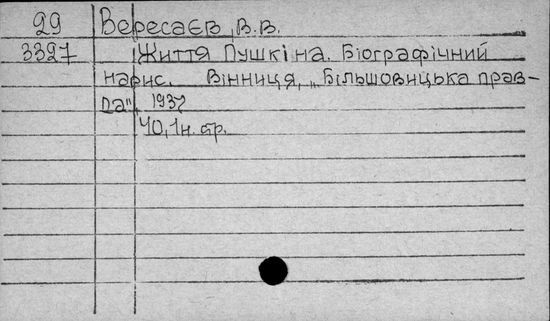 29 Вересаєв, В.В.
3327 Життя Пушкіна. Біографічний
нарис. Вінниця, „Більшовицька прав-
да", 1937
40, 1 н. стр.